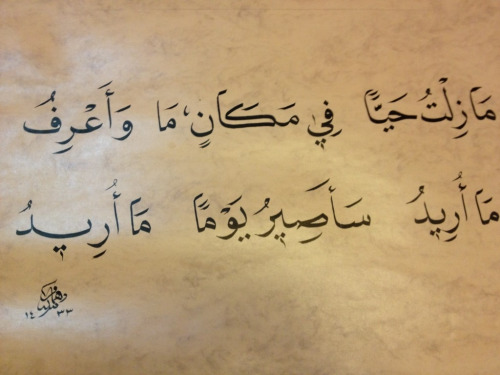 مَا زِلْتُ حَيًّا فِي مَكَانٍ، مَا وَأَعْرِفُ
مَا أُرِيدُ سَأَصِيرُ يَوْمًا مَا أُرِيدُ
١٤٣٣